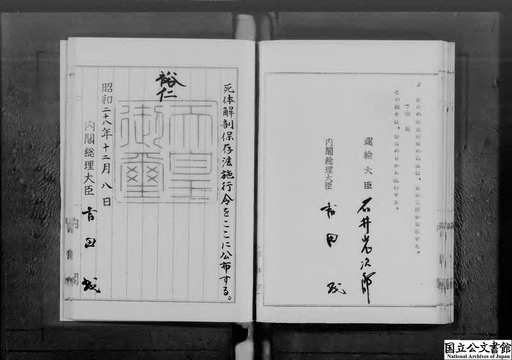 運輸大臣 石井光次郎
内閣総理大臣 吉田茂
死体解剖保存法施行令をここに公布する。
裕仁
天皇御璽
昭和二十八年十二月八日
内閣総理大臣 吉田茂
国立公文書館
National Archives of Japan